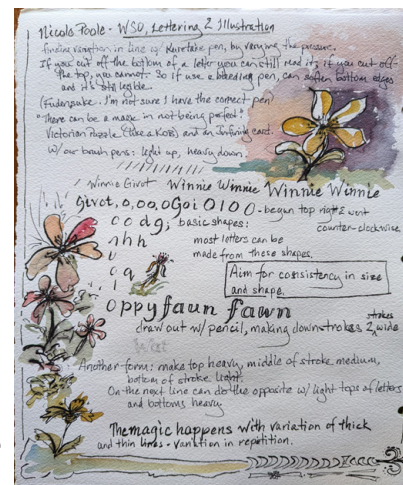 Nicole Poole - WSO, Lettering & Illustration
finding variation in line w/ Kuretake pen, by varying the pressure.
If you cut off the bottom of a letter you can still read it; if you cut off
the top, you cannot. So if use a bleeding pen, can soften bottom edges
and it's still legible.
(Fudenzuke. I'm not sure I have the correct pen)
"There can be a magic in not being perfect"
Victorian Puzzle (like a Koan) and an card.
W/our brush pens: light up, heavy down.
Winnie Givot Winnie Winnie Winnie Winnie
Givot, o, o, o, o Goi O I O O - began top right & went
counter-clockwise
c o d g; basic shapes:
n h h most letters can be
u made from these shapes.
o a
Aim for consistency in size
and shape.
Oppy faun fawn
draw out w/ pencil, making downstrokes 2 strokes wide
Another form: make top heavy, middle of stroke medium,
bottom of stroke light.
On the next line can do the opposite w/ light tops of letters
and bottoms heavy
The magic happens with variation of thick
and thin lines - variation in repetition.